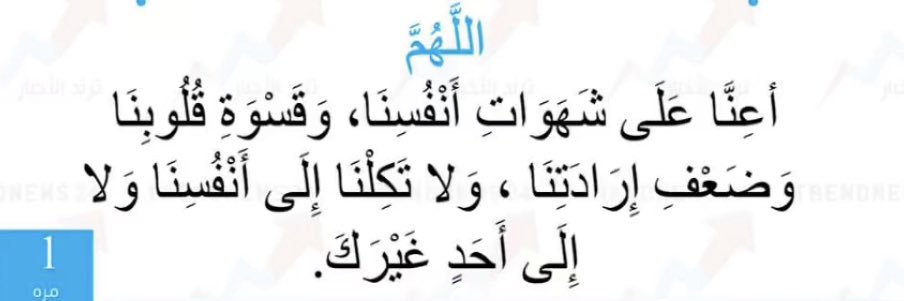 اللَّهُمَّ
أَعِنَّا عَلَى شَهَوَاتِ أَنْفُسِنَا، وَقَسْوَةِ قُلُوبِنَا
وَضَعْفِ إِرَادَتِنَا ، وَلا تَكِلْنَا إِلَى أَنْفُسِنَا وَلا
إِلَى أَحَدٍ غَيْرَكَ.
1
مره